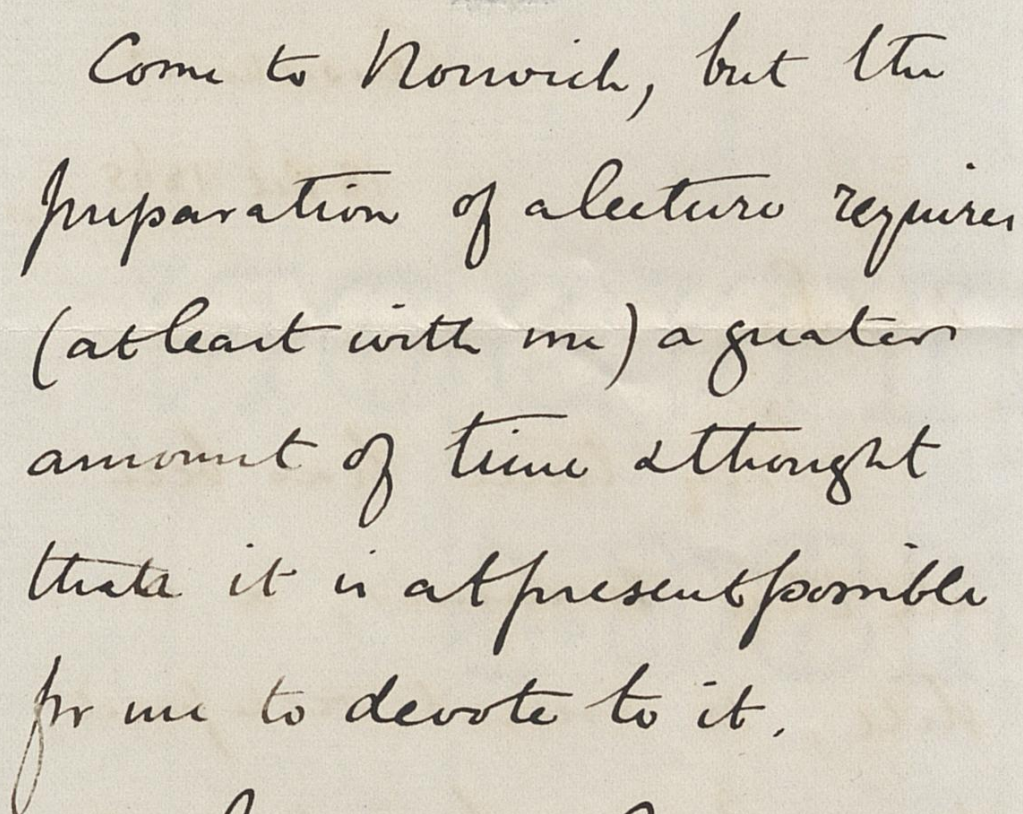 Come to Norwich, but the
preparation of a lecture requires
(at least with me) a greater
amount of time & thought
that it is at present possible
for me to devote to it.